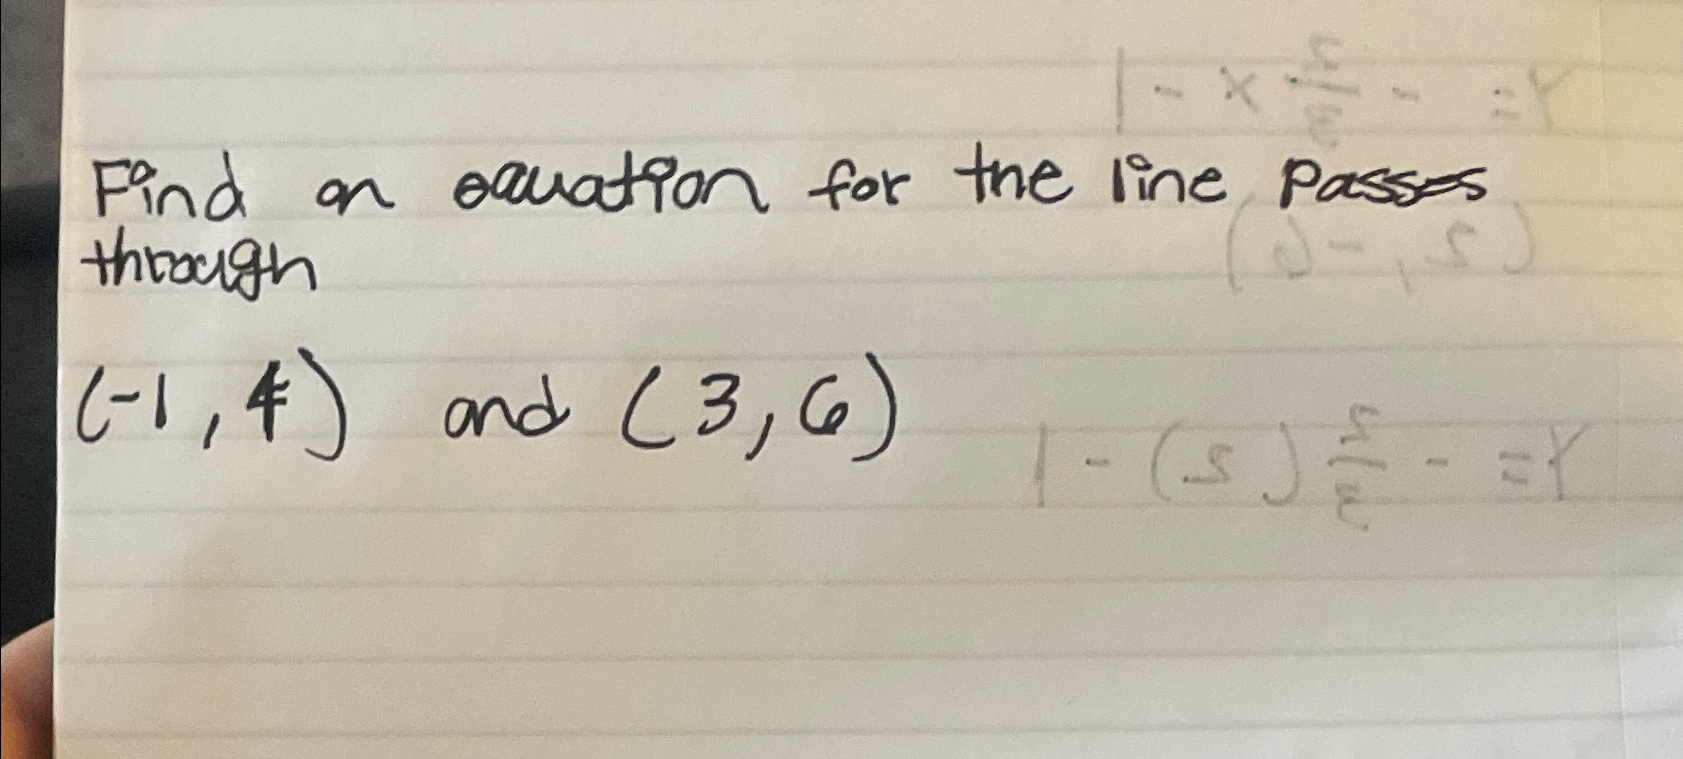 Find an equation for the line passes
through
(-1, 4) and (3, 6)